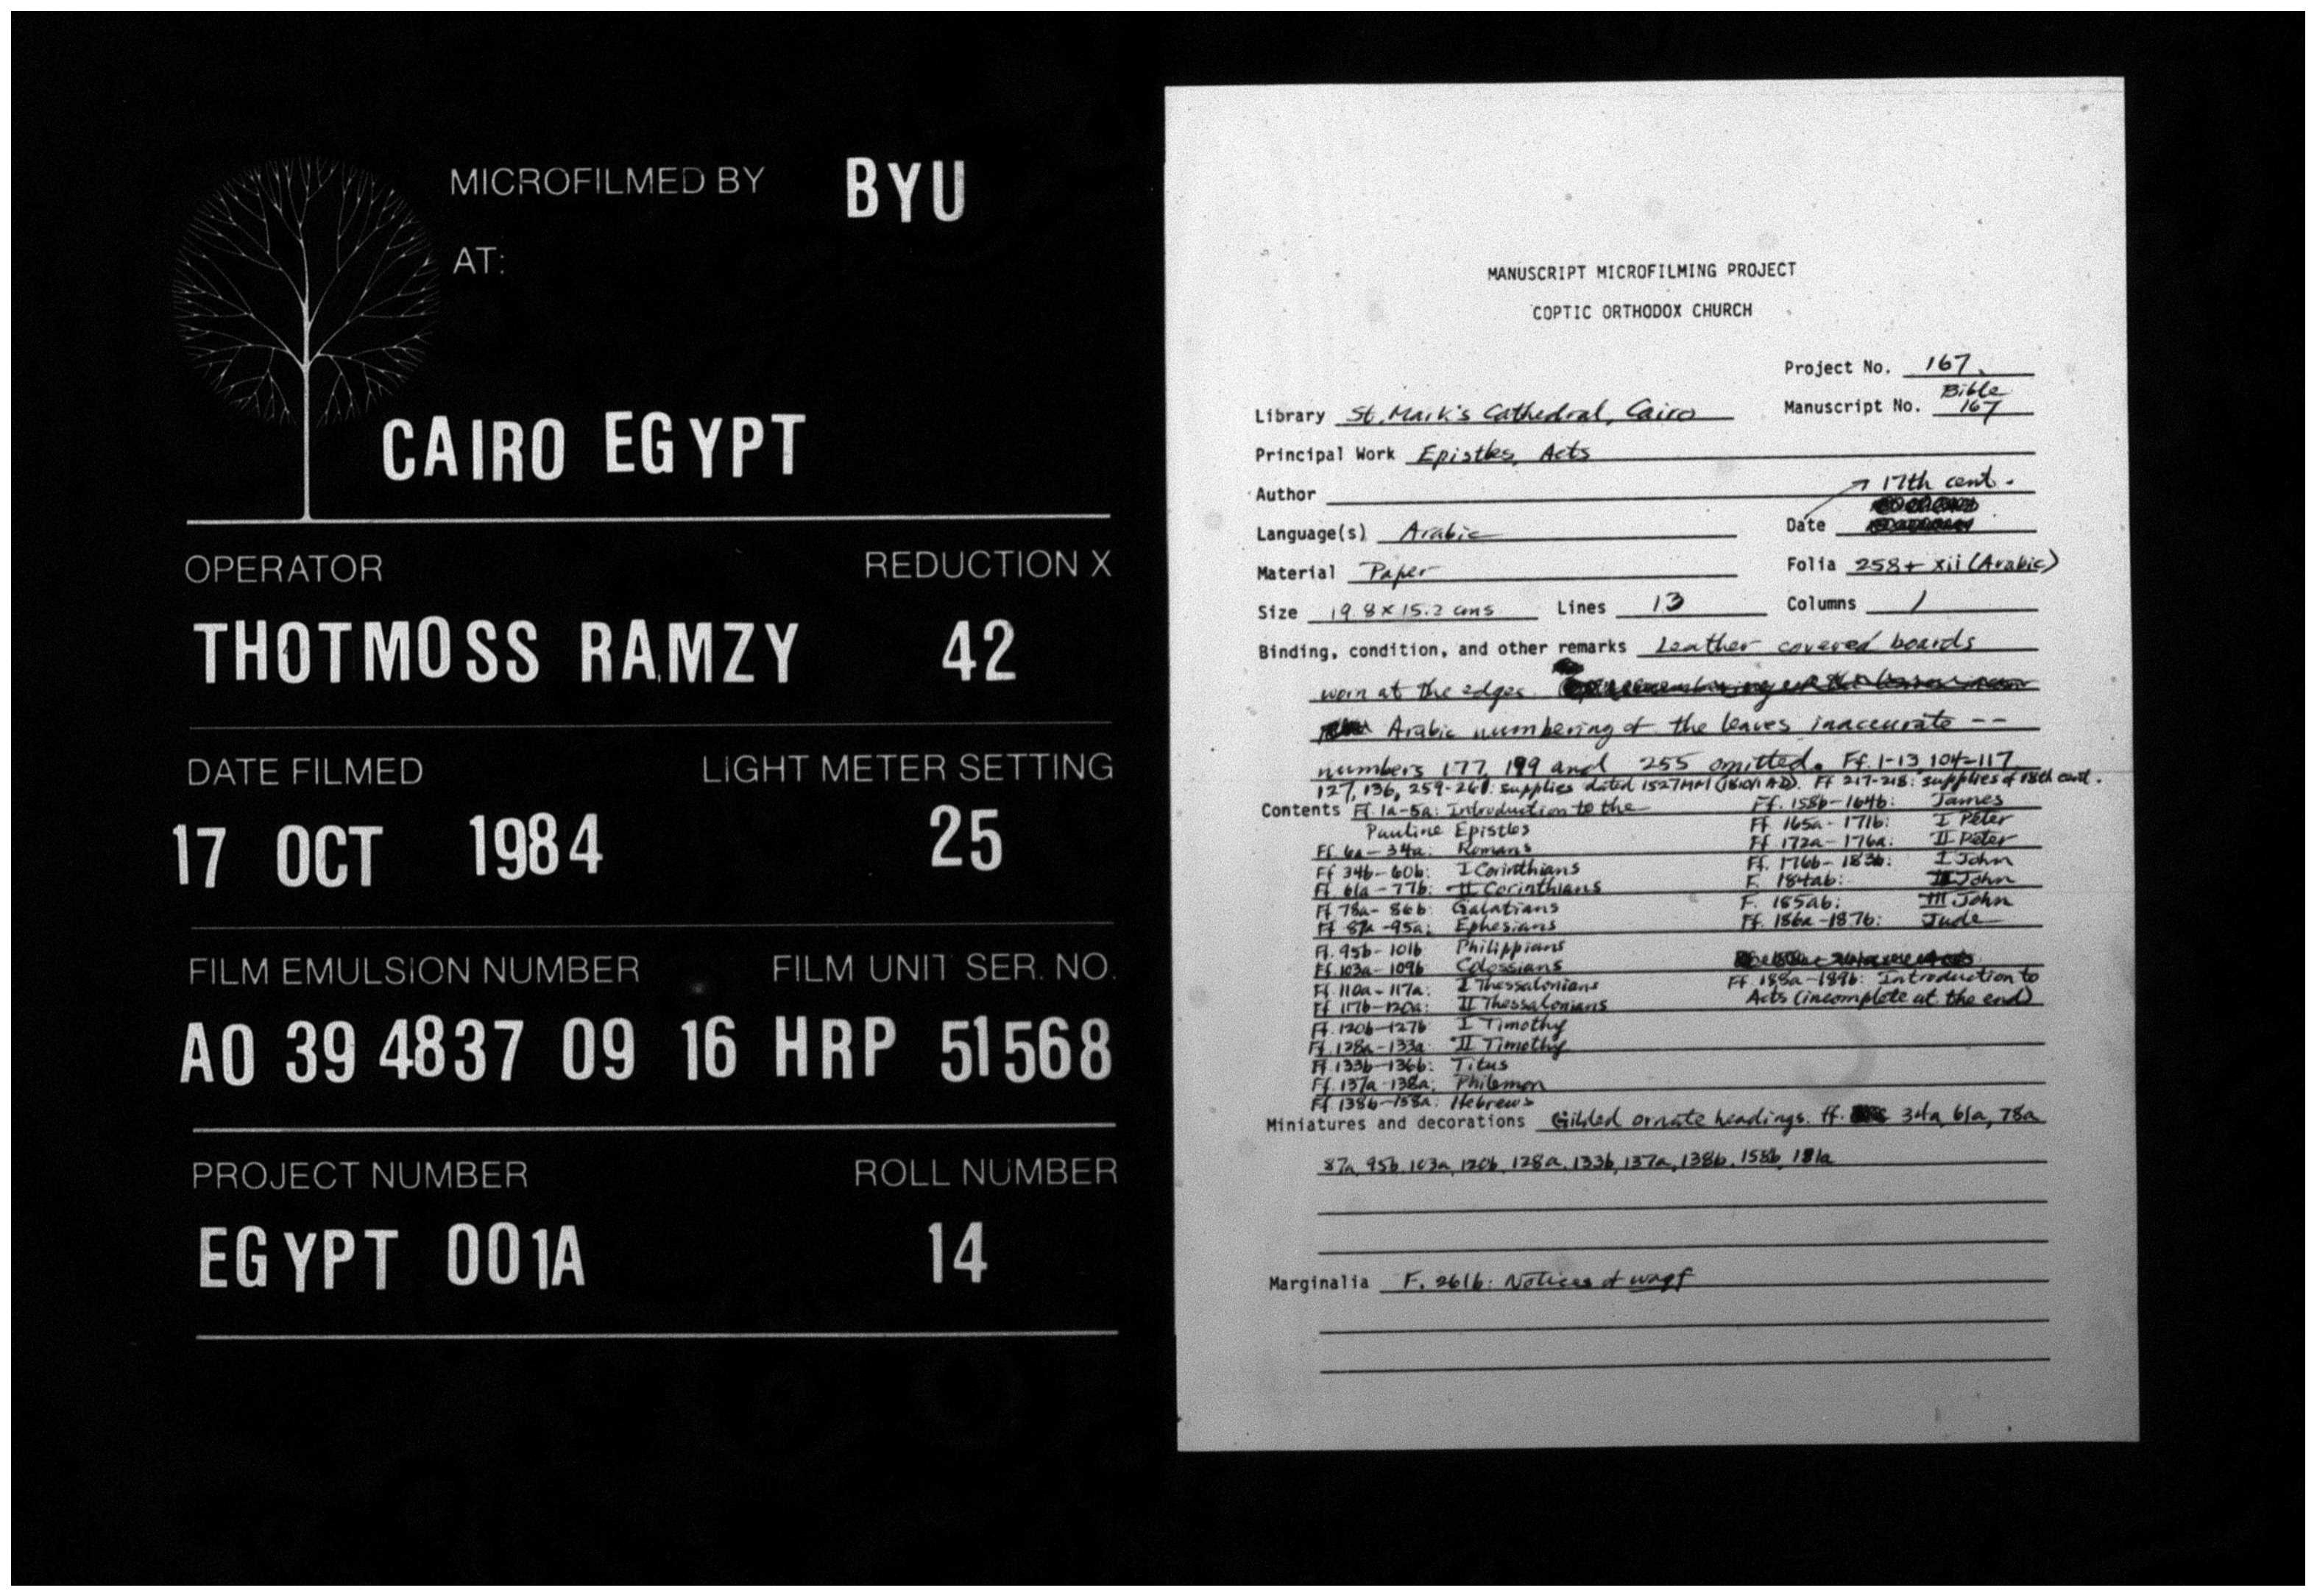 MICROFILMED BY BYU
AT:
CAIRO EGYPT
OPERATOR REDUCTION X
THOTMOSS RAMZY 42
DATE FILMED LIGHT METER SETTING
17 OCT 1984 25
FILM EMULSION NUMBER FILM UNIT SER. NO.
A0 39 4837 09 16 HRP 51568
PROJECT NUMBER ROLL NUMBER
EGYPT 001A 14
MANUSCRIPT MICROFILMING PROJECT
COPTIC ORTHODOX CHURCH
Project No. 167.
Library St. Mark's Cathedral, Cairo Manuscript No. Bible 167
Principal Work Epistles, Acts
Author
17th cent.
Language(s) Arabic Date
Material Paper Folia 258 + xii (Arabic)
Size 19.8 x 15.2 cms Lines 13 Columns 1
Binding, condition, and other remarks Leather covered boards
worn at the edges.
Arabic numbering of the leaves inaccurate --
numbers 177, 199 and 255 omitted. Ff. 1-13 104-117
127, 136, 259-261: supplies dated 1527 MM Ff 217-218: supplies of 18th cent.
Contents Ff. 1a-5a: Introduction to the
Pauline Epistles
Ff. 6a-34a: Romans
Ff 34b-60b: I Corinthians
Ff. 61a-77b: II Corinthians
Ff 78a-86b: Galatians
Ff 87a-95a: Ephesians
Ff. 95b-101b Philippians
Ff. 103a-109b Colossians
Ff 110a-117a: I Thessalonians
Ff 117b-120a: II Thessalonians
Ff. 120b-127b I Timothy
Ff. 128a-133a II Timothy
Ff. 133b-136b: Titus
Ff. 137a-138a: Philemon
Ff. 138b-158a: Hebrews
Ff. 158b-164b: James
Ff 165a-171b: I Peter
Ff 172a-176a: II Peter
Ff. 176b-183b: I John
F. 184ab: II John
F. 185ab: III John
Ff. 186a-187b: Jude
Ff. 188a-189b: Introduction to
Acts (incomplete at the end)
Miniatures and decorations Gilded ornate headings. ff. 34a, 61a, 78a
87a, 95b, 103a, 120b, 128a, 133b, 137a, 138b, 158b, 181a
Marginalia F. 261b: Notices of waqf